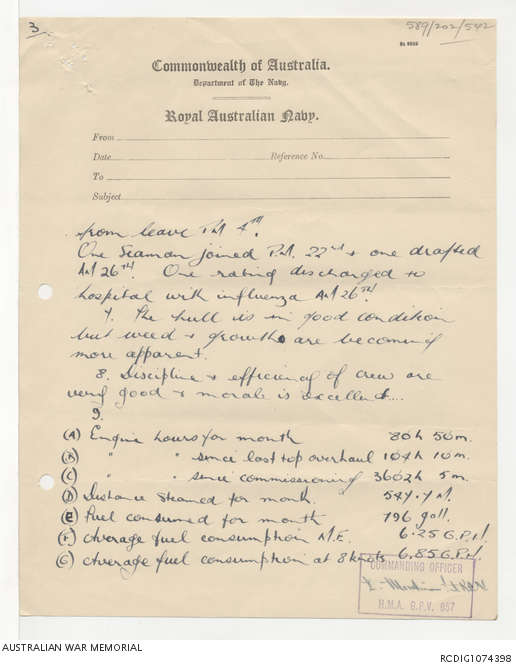 3
589/202/542
Commonwealth of Australia.
Department of The Navy.
Royal Australian Navy.
From
Date Reference No.
To
Subject
from leave P.M. 4TH.
One Seaman joined P.M. 22nd & one drafted
AM 26TH. One rating discharged to
hospital with influenza AM 26TH.
7. The hull is in good condition
but weed & growths are becoming
more apparent.
8. Discipline & efficiency of crew are
very good & morale is excellent...
9.
(A) Engine hours for month 80h 50m.
(B) " " since last top overhaul 104h 10m.
(C) " " since commissioning 3602h 5m.
(D) Distance steamed for month. 547.7 M.
(E) Fuel consumed for month 796 gall.
(F) Average fuel consumption M.E. 6.25 G.P.H.
(G) Average fuel consumption at 8 knots 6.85 G.P.H.
COMMANDING OFFICER
H.M.A. G.P.V. 957
AUSTRALIAN WAR MEMORIAL
RCDIG1074398